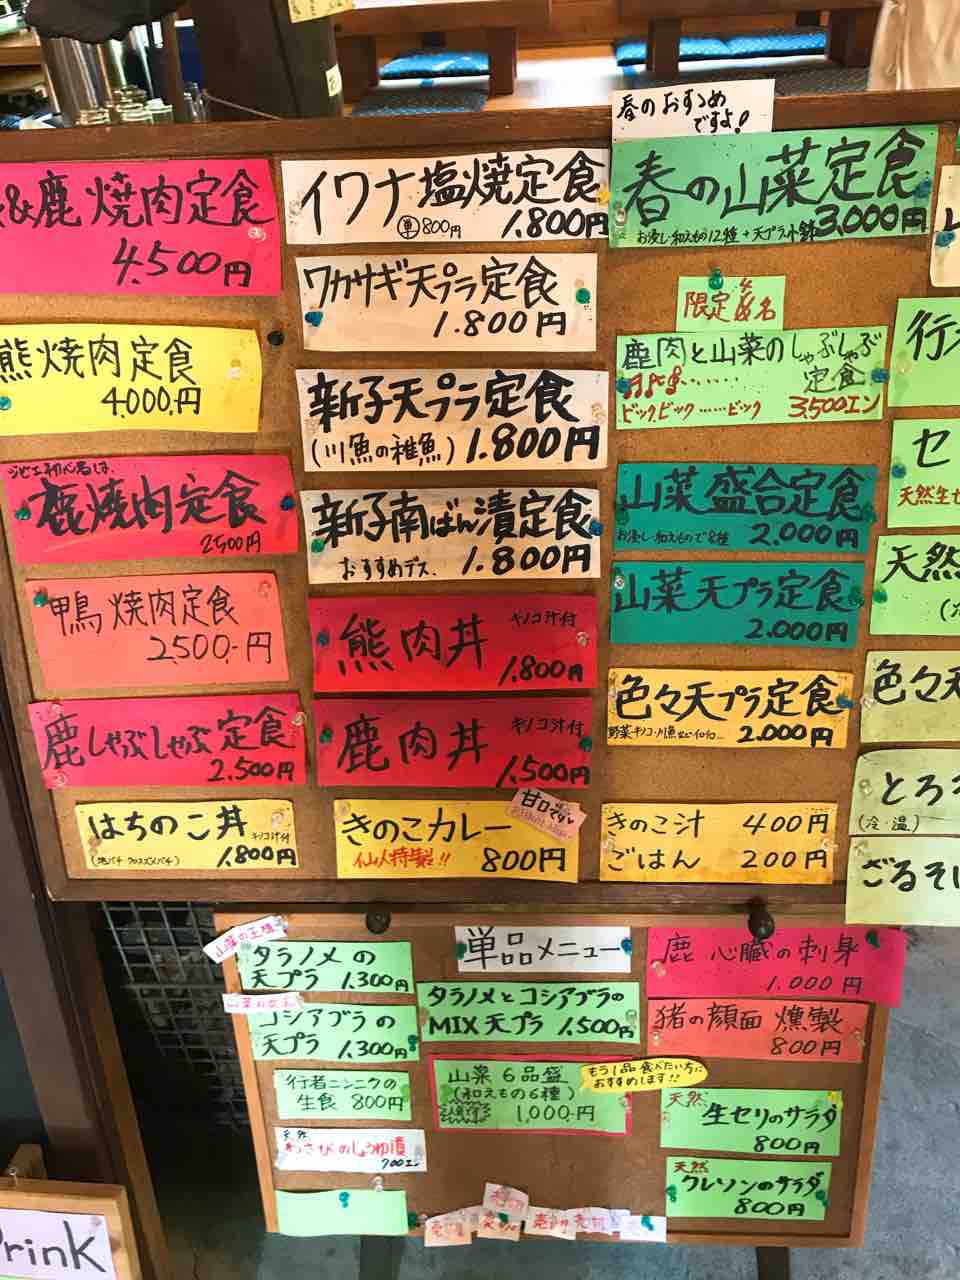 &鹿 焼肉定食
4,500円
熊焼肉定食
4,000円
ジビエ初心者は、
鹿焼肉定食
2500円
鴨焼肉定食
2500-円
鹿しゃぶしゃぶ定食
2,500円
はちのこ丼 キノコ汁付
(地バチ クロスズメバチ) 1,800円
イワナ塩焼定食
単 800円 1.800円
ワカサギ天プラ定食
1.800円
新子天プラ定食
(川魚の稚魚) 1.800円
新子南ばん漬定食
おすすめデス、 1.800円
熊肉丼 キノコ汁付
1,800円
鹿肉丼 キノコ汁付
1,500円
甘口ですよ
きのこカレー
仙人特製!! 800円
春のおすすめ
ですよ!
春の山菜定食
お浸し・和えもの12種+天プラ小鉢 3,000円
限定 名
鹿肉と山菜のしゃぶしゃぶ
定食
ビックビック……ビック 3,500エン
山菜盛合定食
お浸し・和えもので8種 2.000円
山菜天プラ定食
2.000円
色々天プラ定食
野菜・キノコ・川魚などイロイロ… 2.000円
きのこ汁 400円
ごはん 200円
行
セ
天然生セ
天然
色々天
とろろ
(冷・温)
ざるそ
山菜の王様
タラノメの
天プラ 1.300円
山菜の女王
コシアブラの
天プラ 1.300円
行者ニンニクの
生食 800円
天然
わさびのしょうゆ漬
700エン
単品メニュー
タラノメとコシアブラの
MIX天プラ 1.500円
山菜6品盛
(和えもの6種)
1,000-円
もう1品食べたい方に
おすすめします!!
鹿 心臓の刺身
1.000円
猪の顔面 燻製
800円
天然
生セリのサラダ
800円
天然
クレソンのサラダ
800円
売切
Drink